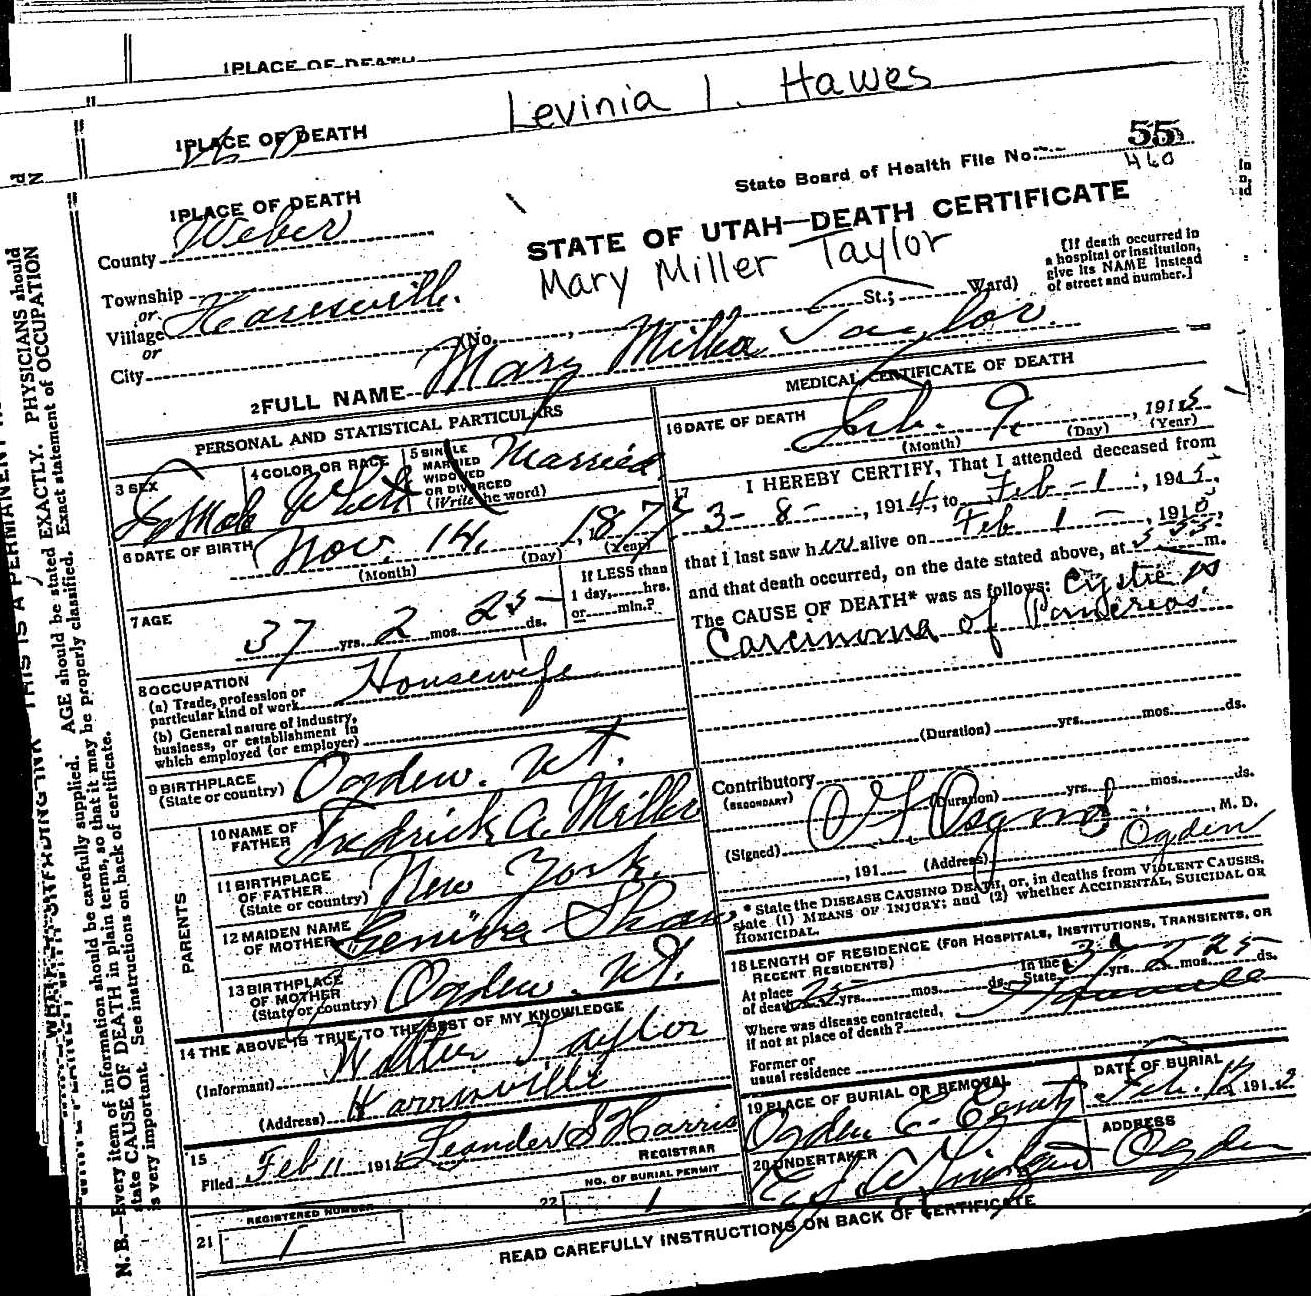 1 PLACE OF DEATH
Levinia I. Hawes
1 PLACE OF DEATH
55
State Board of Health File No.
460
1 PLACE OF DEATH
County Weber
STATE OF UTAH—DEATH CERTIFICATE
Mary Miller Taylor
[If death occurred in
a hospital or institution,
give its NAME instead
of street and number.]
Township
or
Village
or
City
(No. , St.; Ward)
2 FULL NAME Mary Miller Taylor
PERSONAL AND STATISTICAL PARTICULARS
3 SEX Female
4 COLOR OR RACE White
5 SINGLE
MARRIED
WIDOWED
OR DIVORCED
(Write the word)
Married
6 DATE OF BIRTH
Nov. 14, 1877
(Month) (Day) (Year)
7 AGE
37 yrs. 2 mos. 25 ds.
If LESS than
1 day, hrs.
or min.?
8 OCCUPATION
(a) Trade, profession or
particular kind of work Housewife
(b) General nature of industry,
business, or establishment in
which employed (or employer)
9 BIRTHPLACE
(State or country) Ogden. Ut.
PARENTS
10 NAME OF
FATHER Fredrick A. Miller
11 BIRTHPLACE
OF FATHER
(State or country) New York.
12 MAIDEN NAME
OF MOTHER Shaw
13 BIRTHPLACE
OF MOTHER
(State or country) Ogden. Ut.
14 THE ABOVE IS TRUE TO THE BEST OF MY KNOWLEDGE
(Informant) Walter Taylor
(Address)
15
Filed Feb 11 191 Leander S Harris
REGISTRAR
21
REGISTERED NUMBER
1
22
NO. OF BURIAL PERMIT
1
MEDICAL CERTIFICATE OF DEATH
16 DATE OF DEATH
Feb. 9, 1915
(Month) (Day) (Year)
17 I HEREBY CERTIFY, That I attended deceased from
3-8-, 1914, to Feb-1, 1915,
that I last saw her alive on Feb 1-, 191
and that death occurred, on the date stated above, at m.
The CAUSE OF DEATH* was as follows:
Carcinoma of Pancreas
(Duration) yrs. mos. ds.
Contributory
(SECONDARY)
(Duration) yrs. mos. ds.
(Signed) M. D.
, 191 (Address) Ogden
* State the DISEASE CAUSING DEATH, or, in deaths from VIOLENT CAUSES,
state (1) MEANS OF INJURY; and (2) whether ACCIDENTAL, SUICIDAL OR
HOMICIDAL.
18 LENGTH OF RESIDENCE (FOR HOSPITALS, INSTITUTIONS, TRANSIENTS, OR
RECENT RESIDENTS)
At place
of death 25 yrs. mos. ds.
In the
State 37 yrs. 2 mos. 25 ds.
Where was disease contracted,
if not at place of death?
Former or
usual residence
19 PLACE OF BURIAL OR REMOVAL
Ogden
DATE OF BURIAL
Feb. 12, 191
20 UNDERTAKER
ADDRESS
Ogden
READ CAREFULLY INSTRUCTIONS ON BACK OF CERTIFICATE
N. B.—Every item of information should be carefully supplied. AGE should be stated EXACTLY. PHYSICIANS should
state CAUSE OF DEATH in plain terms, so that it may be properly classified. Exact statement of OCCUPATION
is very important. See instructions on back of certificate.